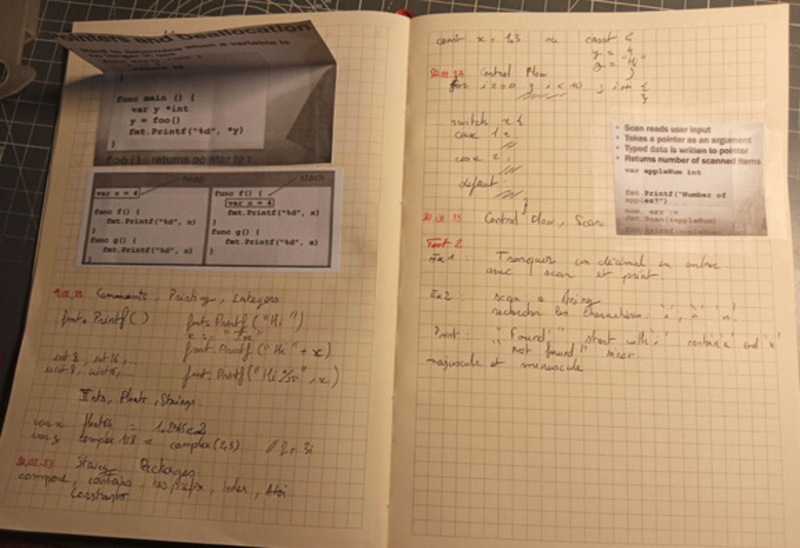 Pointers and Deallocation
Hard to determine when a variable is
no longer in use
}
func main () {
var y *int
y = foo()
fmt.Printf("%d", *y)
foo() returns pointer to x
heap
stack
var x = 4
func f() {
fmt.Printf("%d", x)
func g() {
fmt.Printf("%d", x)
func f() {
var x = 4
fmt.Printf("%d", x)
func g() {
fmt.Printf("%d", x)
Comments, Printing, Integers
fmt.Printf()
fmt.Printf("Hi")
x := "Joe"
fmt.Printf("Hi" + x)
int 8, int 16, ...
uint 8, uint 16, ...
fmt.Printf("Hi %s", x)
Ints, Floats, Strings
var x float64 =
var z complex 128 = complex(2,3) // 2+3i
Packages
compare, contains,
Constants
const x = 1.3 ou const (
y = 4
z = "Hi"
)
Control Flow
for i=0; i<10; i++ {
}
switch x {
case 1:
case 2:
default
}
• Scan reads user input
• Takes a pointer as an argument
• Typed data is written to pointer
• Returns number of scanned items
var appleNum int
fmt.Printf("Number of
apples?")
num, err :=
fmt.Scan(&appleNum)
Control Flow, Scan
Test 2
Ex 1 : Tronquer un décimal en entier
avec scan et print.
Ex 2 : scan a string
rechercher les charactères 'i', 'a', 'n'
Print : "Found" start with i, contains a
"not found"
majuscule et minuscule